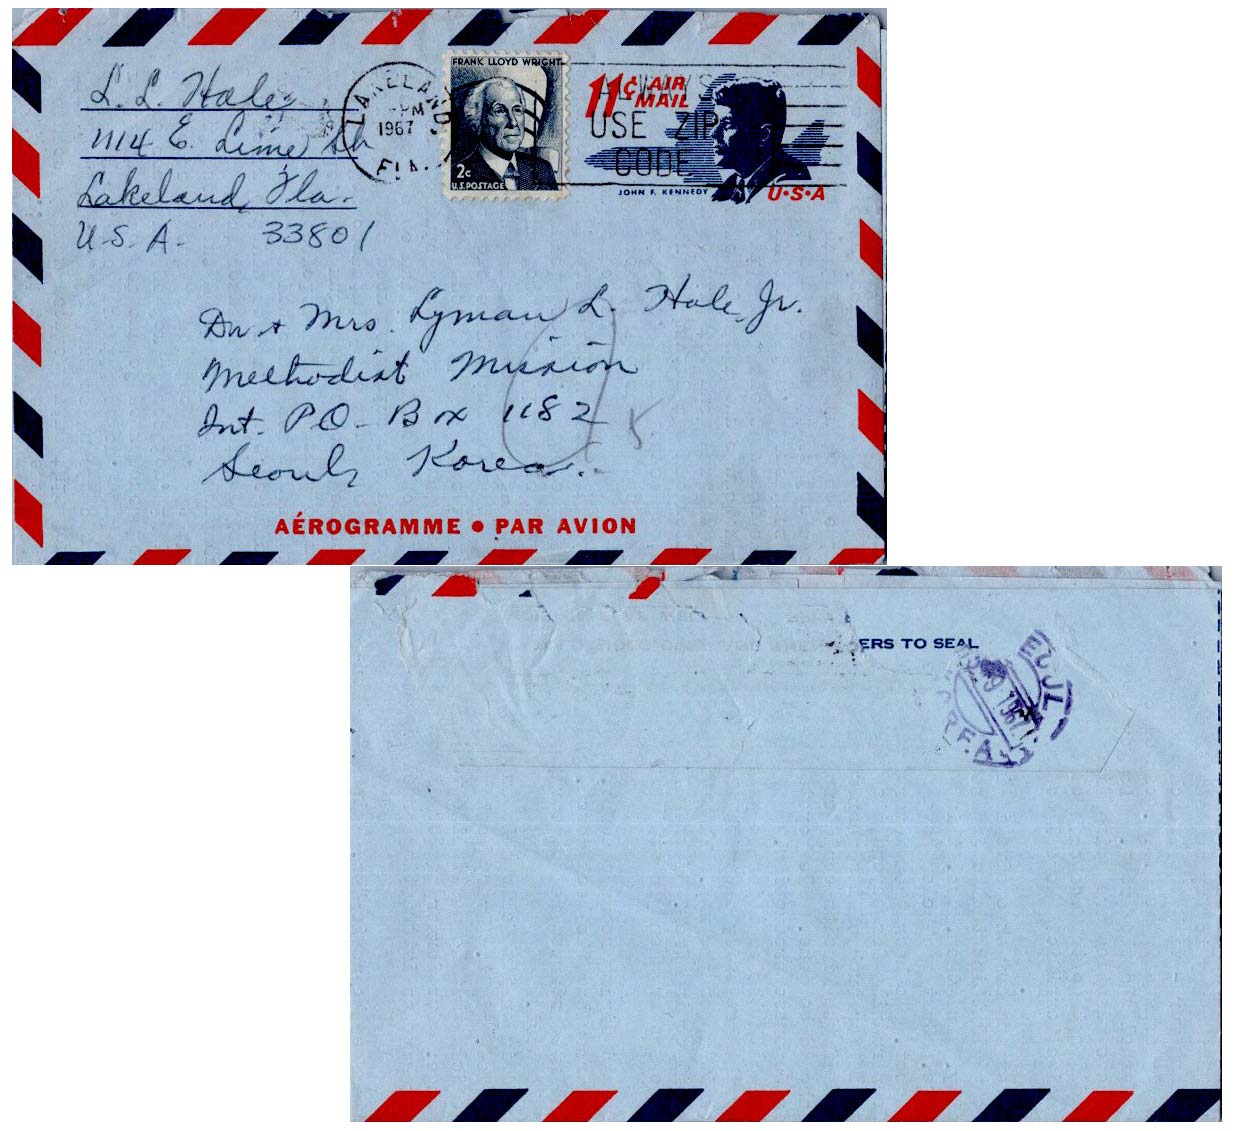 L. L. Hale
1114 E. Lime St
Lakeland, Fla.
U.S.A. 33801
LAKELAND
PM
1967
FLA.
FRANK LLOYD WRIGHT
2c
U.S. POSTAGE
11¢ AIR
MAIL
ALWAYS
USE ZIP
CODE
JOHN F. KENNEDY
U·S·A
Dr. & Mrs. Lyman L. Hale, Jr.
Methodist Mission
Int. P.O. Box 1182
Seoul, Korea.
AÉROGRAMME • PAR AVION
ERS TO SEAL
1967